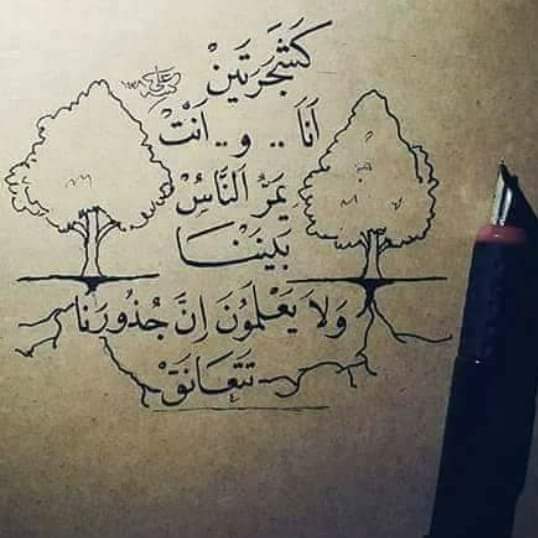 كَشَجَرَتَيْنْ
أَنَا .. و .. أَنْتْ
يَمَرُّ اَلنَّاسُ
بَيْنَنَا
وَلاَ يَعْلَمُونَ اِنَّ جُذُورَنا
تَتَعَانَقْ